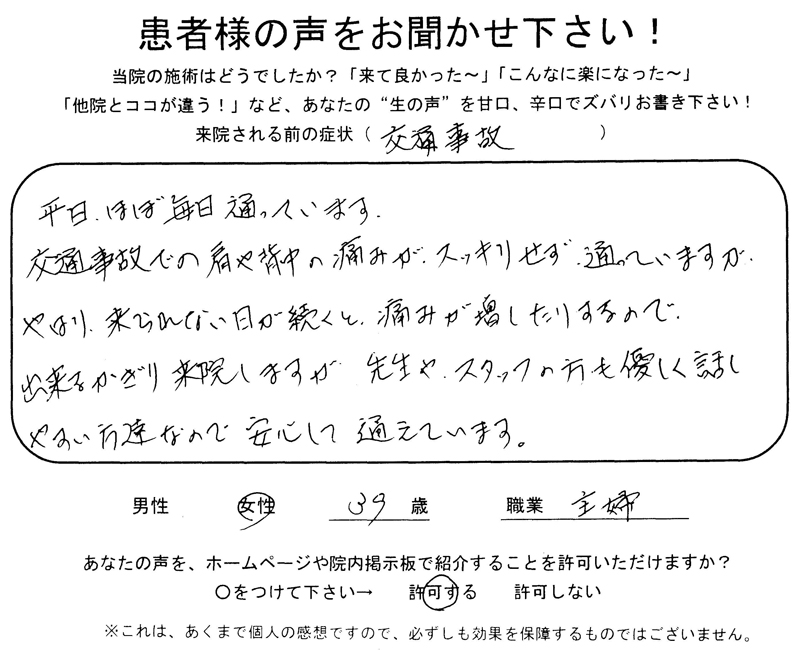 患者様の声をお聞かせ下さい！
当院の施術はどうでしたか？「来て良かった～」「こんなに楽になった～」
「他院とココが違う！」など、あなたの“生の声”を甘口、辛口でズバリお書き下さい！
来院される前の症状（ 交通事故 ）
平日、ほぼ毎日通っています。
交通事故での肩や背中の痛みが、スッキリせず、通っていますが、
やはり、来られない日が続くと、痛みが増したりするので、
出来るかぎり来院しますが 先生や、スタッフの方も優しく話し
やすい方達なので安心して通えています。
男性 女性 39 歳 職業 主婦
あなたの声を、ホームページや院内掲示板で紹介することを許可いただけますか？
○をつけて下さい→ 許可する 許可しない
※これは、あくまで個人の感想ですので、必ずしも効果を保障するものではございません。